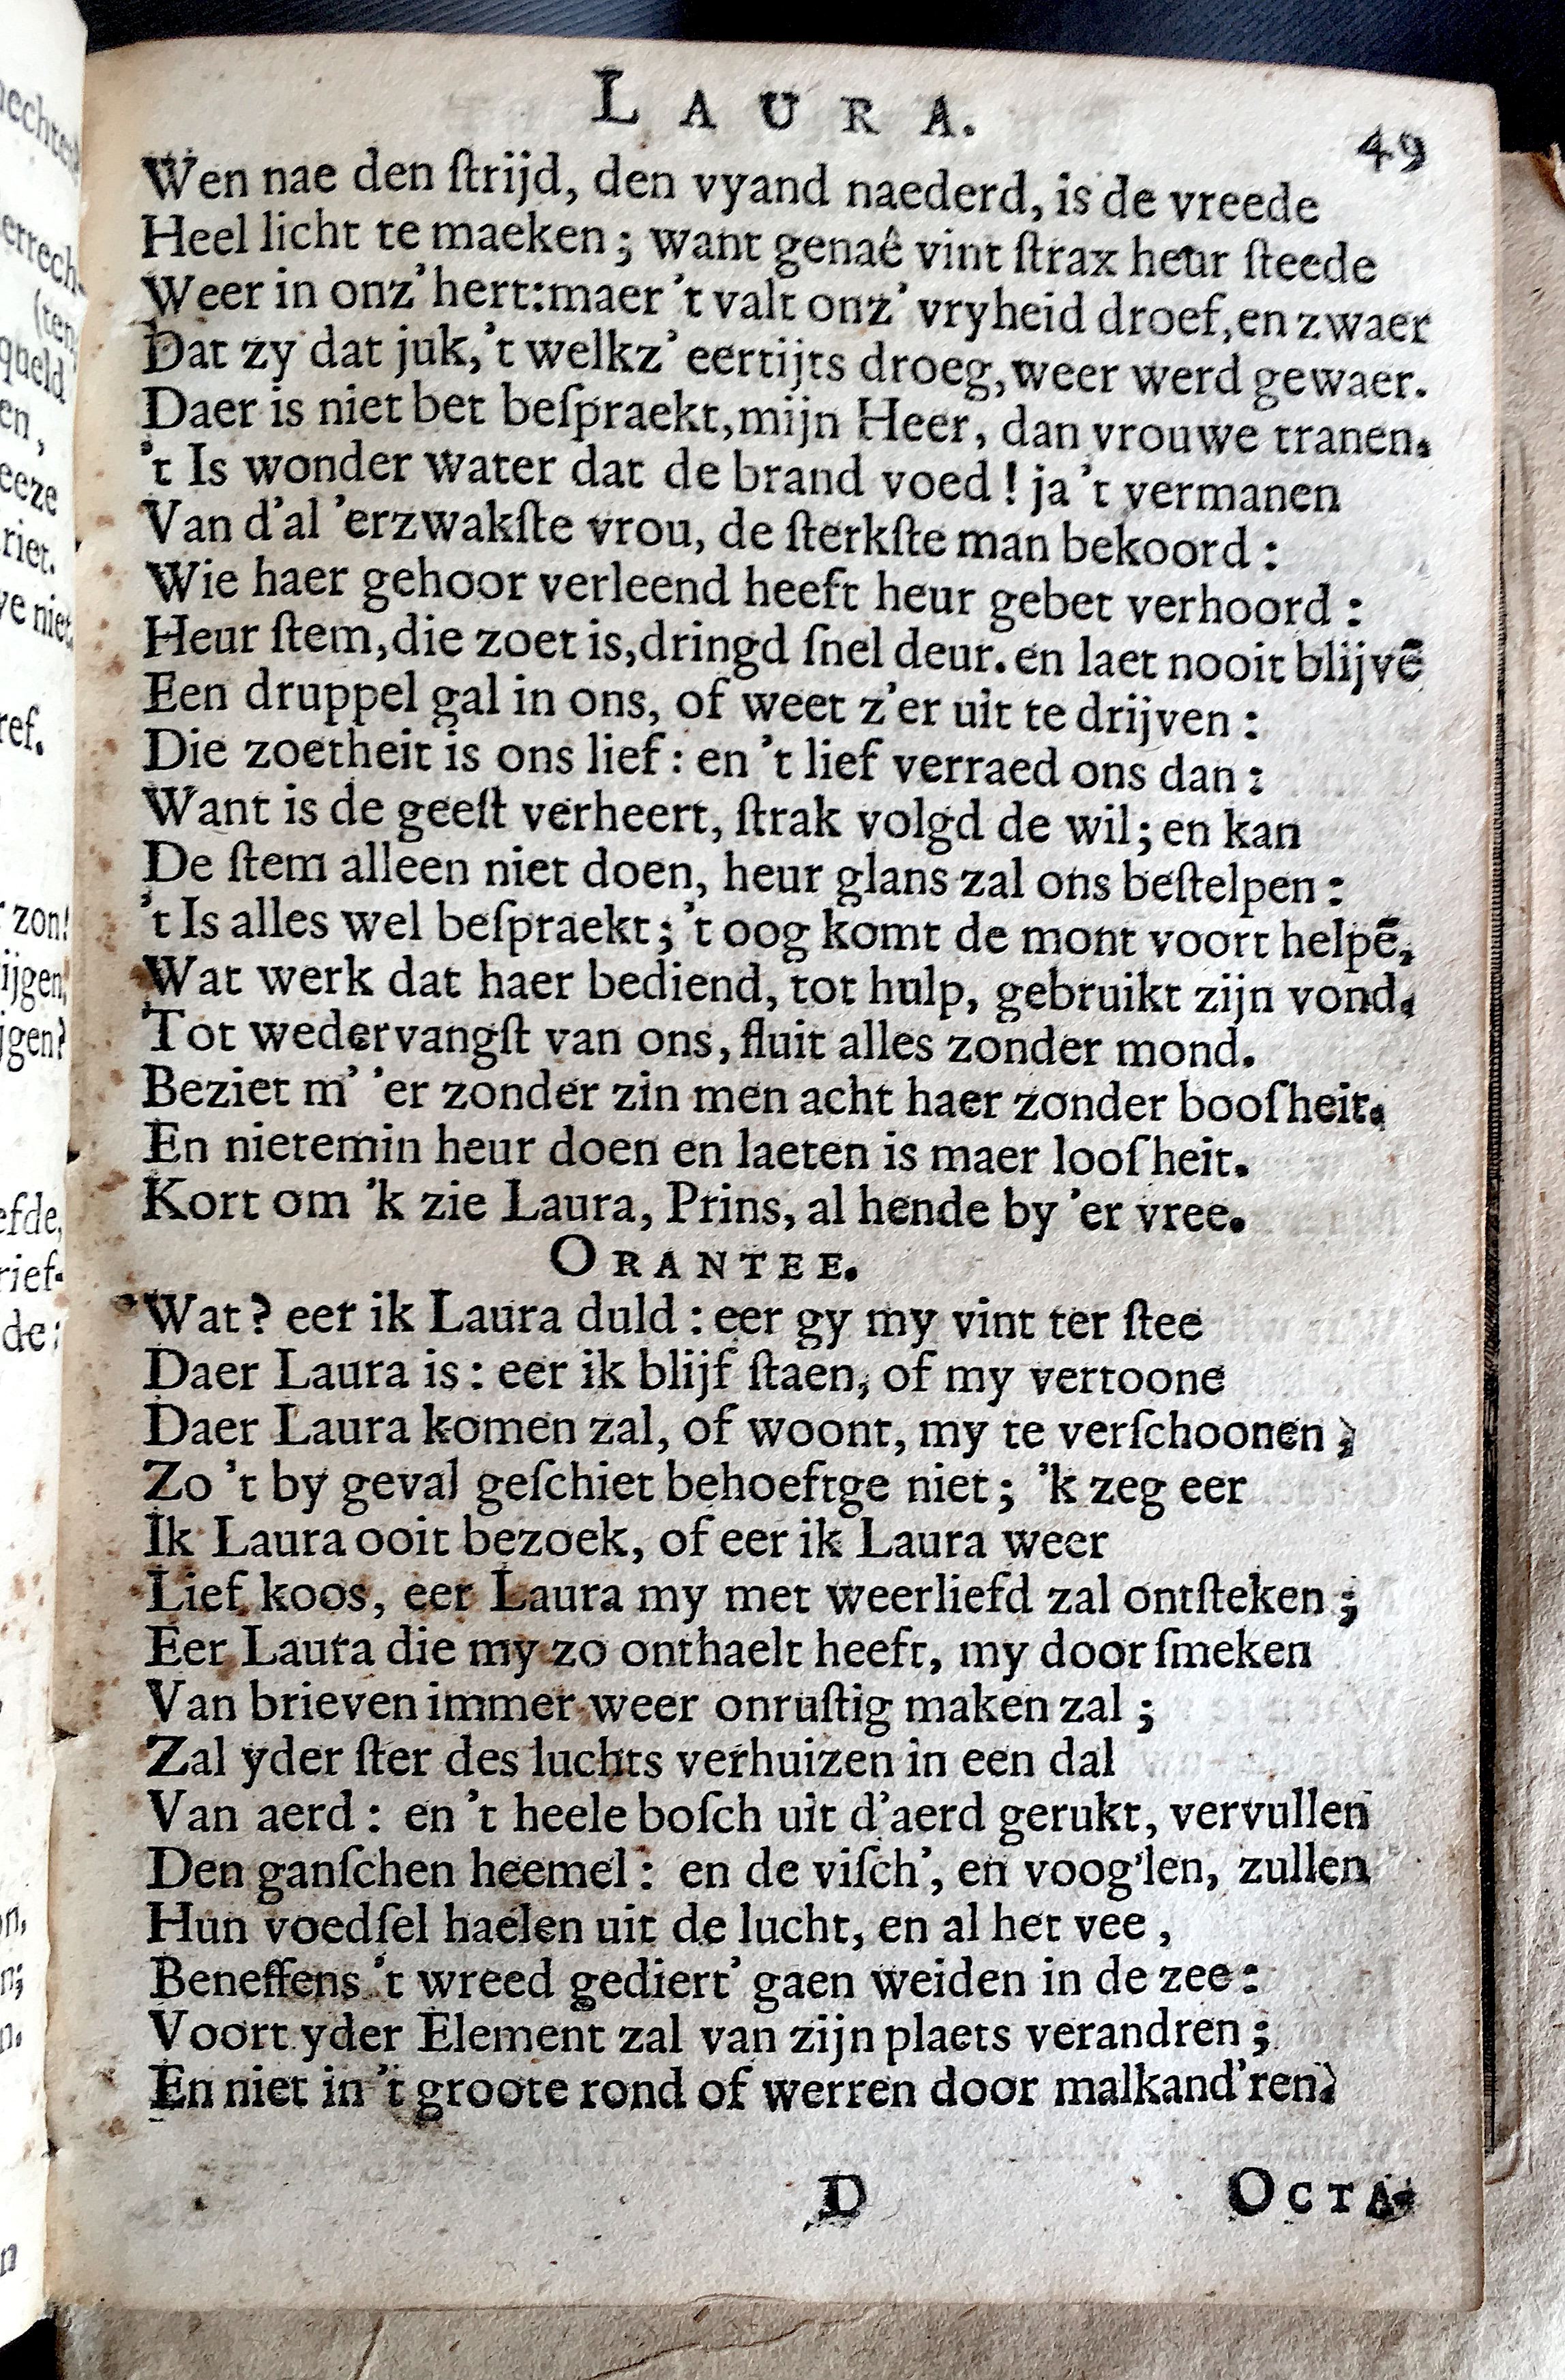 LAURA.
49
Wen nae den ſtrijd, den vyand naederd, is de vreede
Heel licht te maeken; want genaê vint ſtrax heur ſteede
Weer in onz' hert: maer 't valt onz' vryheid droef, en zwaer
Dat zy dat juk, 't welkz' eertijts droeg, weer werd gewaer.
Daer is niet bet beſpraekt, mijn Heer, dan vrouwe tranen.
't Is wonder water dat de brand voed! ja 't vermanen
Van d'al 'erzwakſte vrou, de ſterkſte man bekoord:
Wie haer gehoor verleend heeft heur gebet verhoord:
Heur ſtem, die zoet is, dringd ſnel deur. en laet nooit blijvē
Een druppel gal in ons, of weet z'er uit te drijven:
Die zoetheit is ons lief: en 't lief verraed ons dan:
Want is de geeſt verheert, ſtrak volgd de wil; en kan
De ſtem alleen niet doen, heur glans zal ons beſtelpen:
't Is alles wel beſpraekt; 't oog komt de mont voort helpē,
Wat werk dat haer bediend, tot hulp, gebruikt zijn vond.
Tot wedervangſt van ons, fluit alles zonder mond.
Beziet m' 'er zonder zin men acht haer zonder booſheit.
En nietemin heur doen en laeten is maer looſheit.
Kort om 'k zie Laura, Prins, al hende by 'er vree.
ORANTEE.
Wat? eer ik Laura duld: eer gy my vint ter ſtee
Daer Laura is: eer ik blijf ſtaen, of my vertoone
Daer Laura komen zal, of woont, my te verſchoonen;
Zo 't by geval geſchiet behoeftge niet; 'k zeg eer
Ik Laura ooit bezoek, of eer ik Laura weer
Lief koos, eer Laura my met weerliefd zal ontſteken;
Eer Laura die my zo onthaelt heeft, my door ſmeken
Van brieven immer weer onruſtig maken zal;
Zal yder ſter des luchts verhuizen in een dal
Van aerd: en 't heele boſch uit d'aerd gerukt, vervullen
Den ganſchen heemel: en de viſch', en voog'len, zullen
Hun voedſel haelen uit de lucht, en al het vee,
Beneffens 't wreed gediert' gaen weiden in de zee:
Voort yder Element zal van zijn plaets verandren;
En niet in 't groote rond of werren door malkand'ren.
D
OCTA-